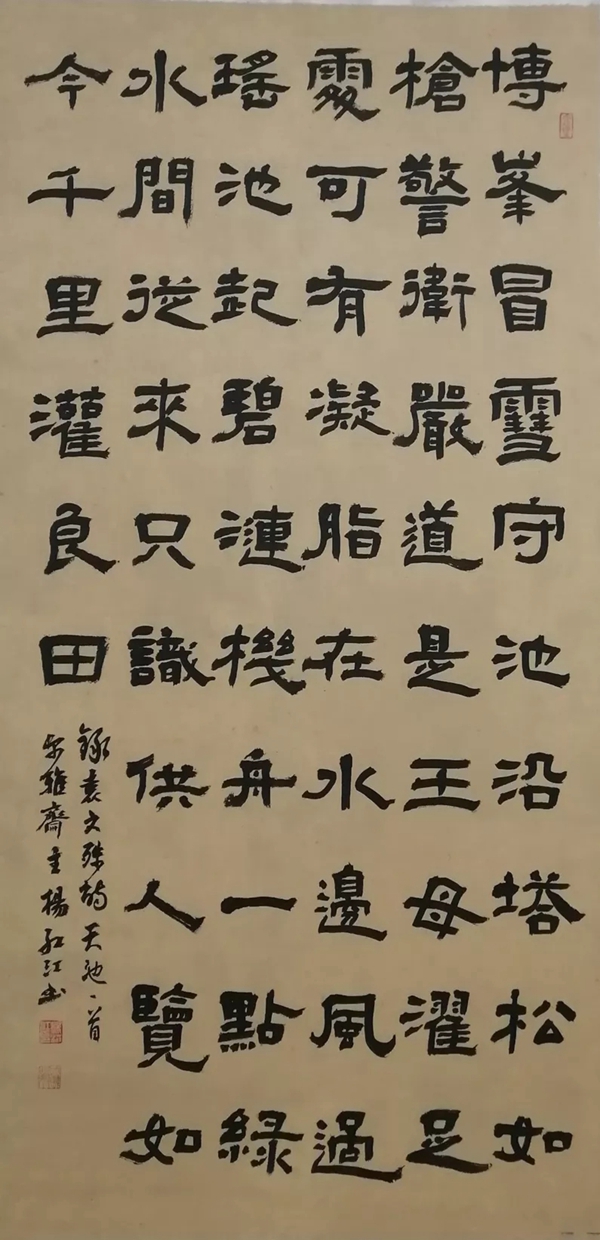 博峯冒雪守池沿塔松如
槍警衛嚴道是王母濯足
處可有凝脂在水邊風過
瑤池起碧漣機舟一點綠
水間從來只識供人覽如
今千里灌良田
錄袁文殊詩天池一首
尔雅齋主楊紅江書